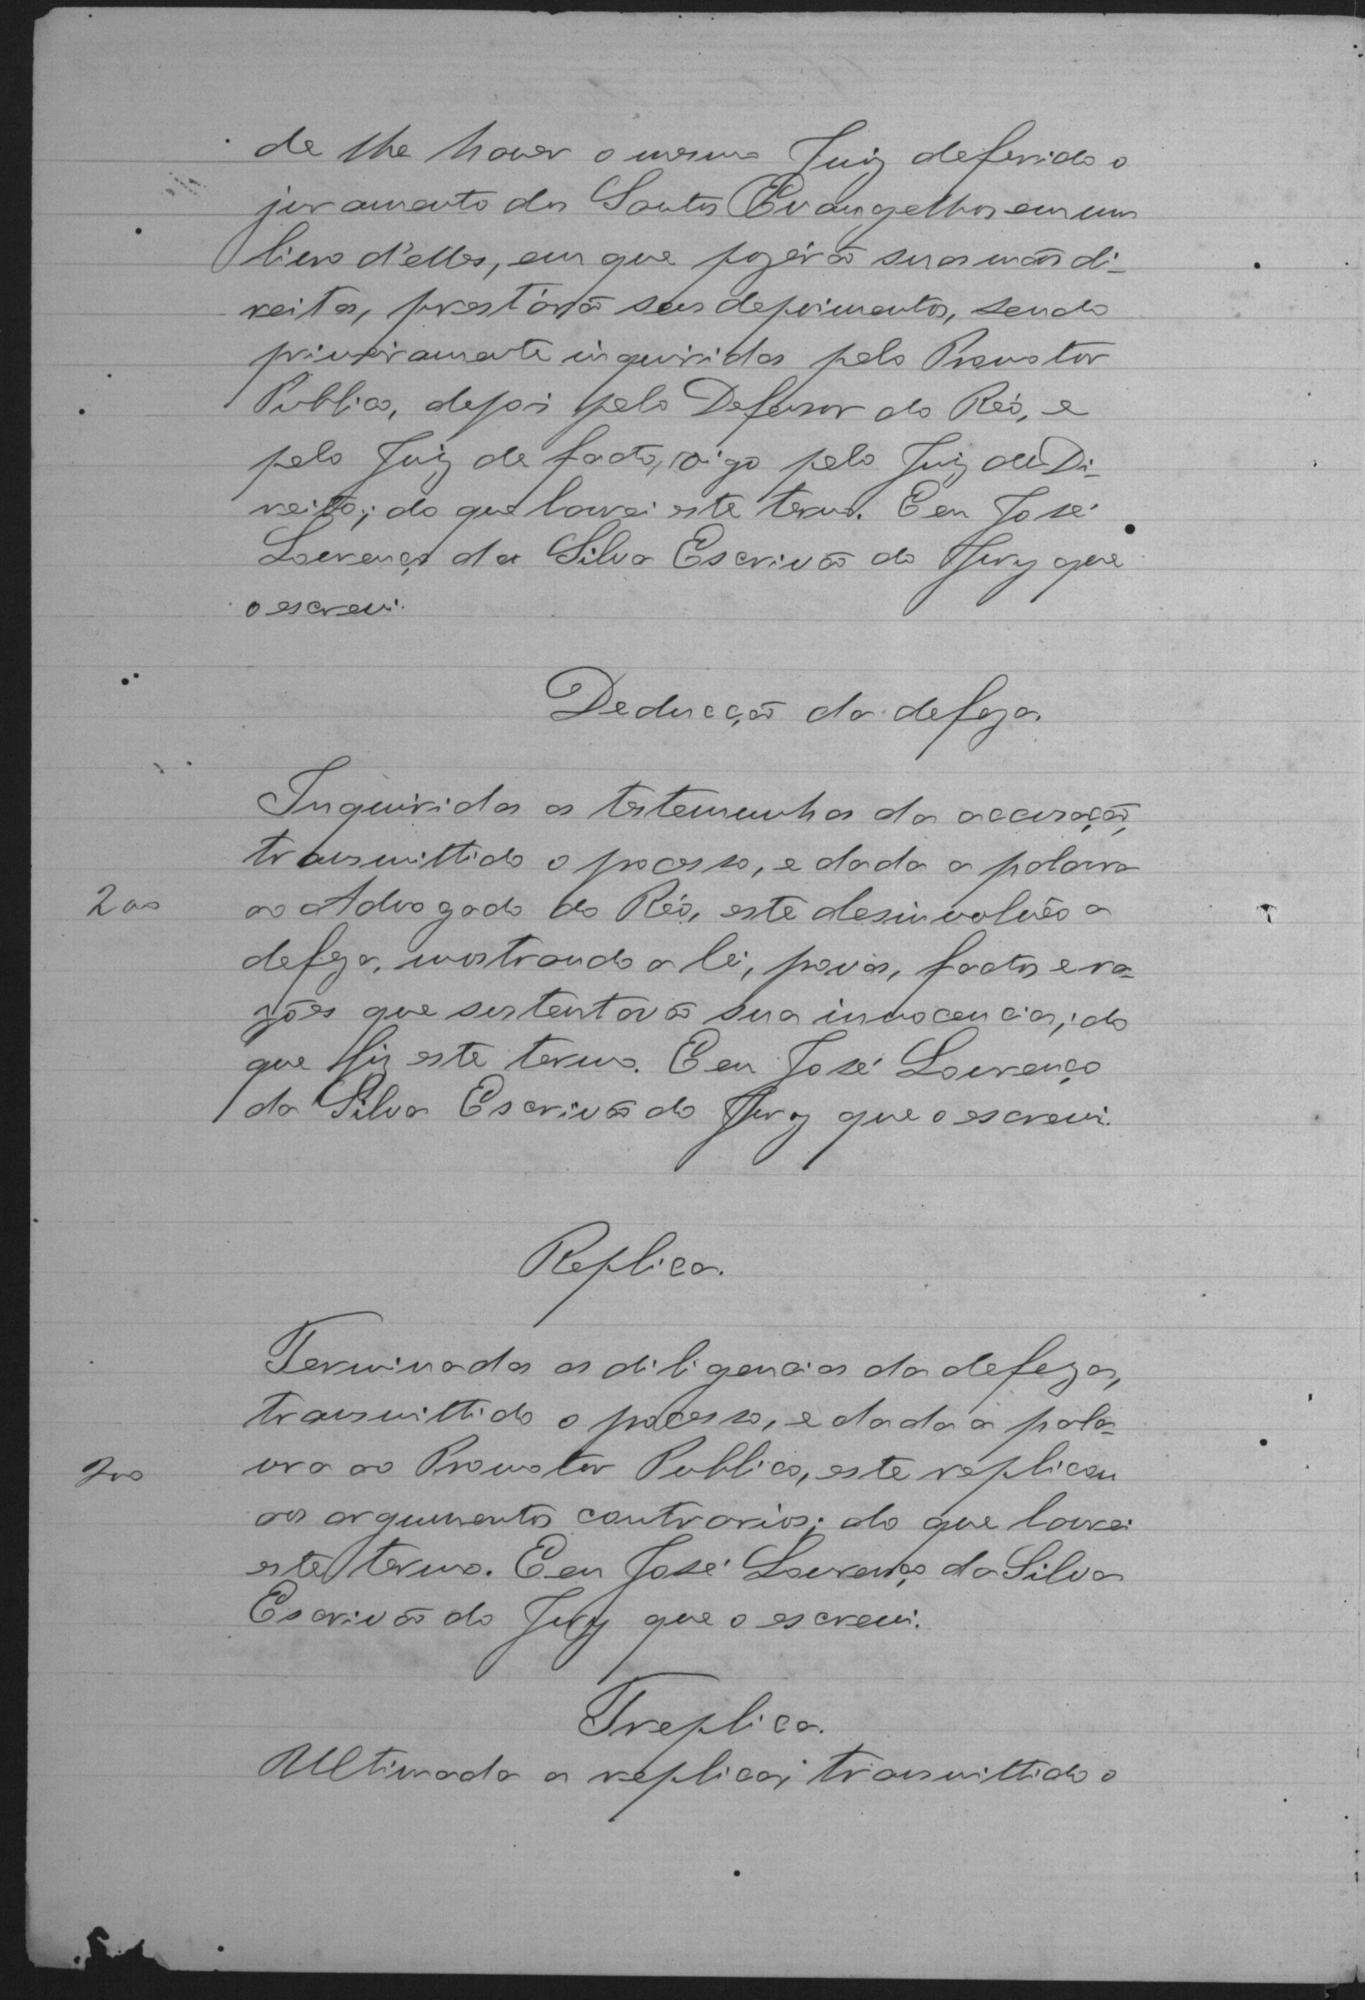 de lhe haver o mesmo Juiz deferido o
juramento dos Santos Evangelhos em um
livro d'elles, em que pozérão suas mãos di-
reitas, prestárão seus depoimentos, sendo
primeiramente inquiridas pelo Promotor
Publico, depois pelo Defensor do Réo, e
pelo Juiz de facto, digo pelo Juiz de Di-
reito; do que lavrei este termo. E eu José
Lourenço da Silva Escrivão do Jury que
o escrevi.
Deducção da defeza.
Inquiridas as testemunhas da accusação,
transmittido o processo, e dada a palavra
200
ao Advogado do Réo, este desinvolvêo a
defeza, mostrando a lei, provas, factos e ra-
zões que sustentavão sua innocencia; do
que fiz este termo. E eu José Lourenço
da Silva Escrivão do Jury que o escrevi.
Replica.
Terminadas as diligencias da defeza,
transmittido o processo, e dada a pala-
200
vra ao Promotor Publico, este replicou
aos argumentos contrarios; do que lavrei
este termo. E eu José Lourenço da Silva
Escrivão do Jury que o escrevi.
Treplica.
Ultimada a replica; transmittido o